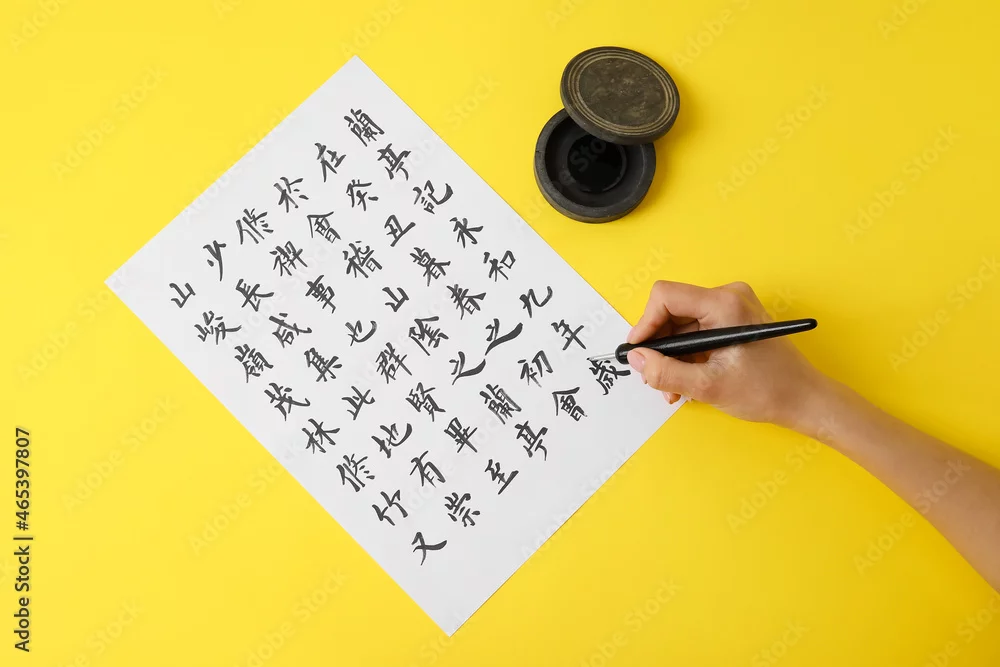 蘭亭記永和九年歲
在癸丑暮春之初會
於會稽山陰之蘭亭
修禊事也群賢畢至
少長咸集此地有崇
山峻嶺茂林修竹又
Adobe Stock | #465397807